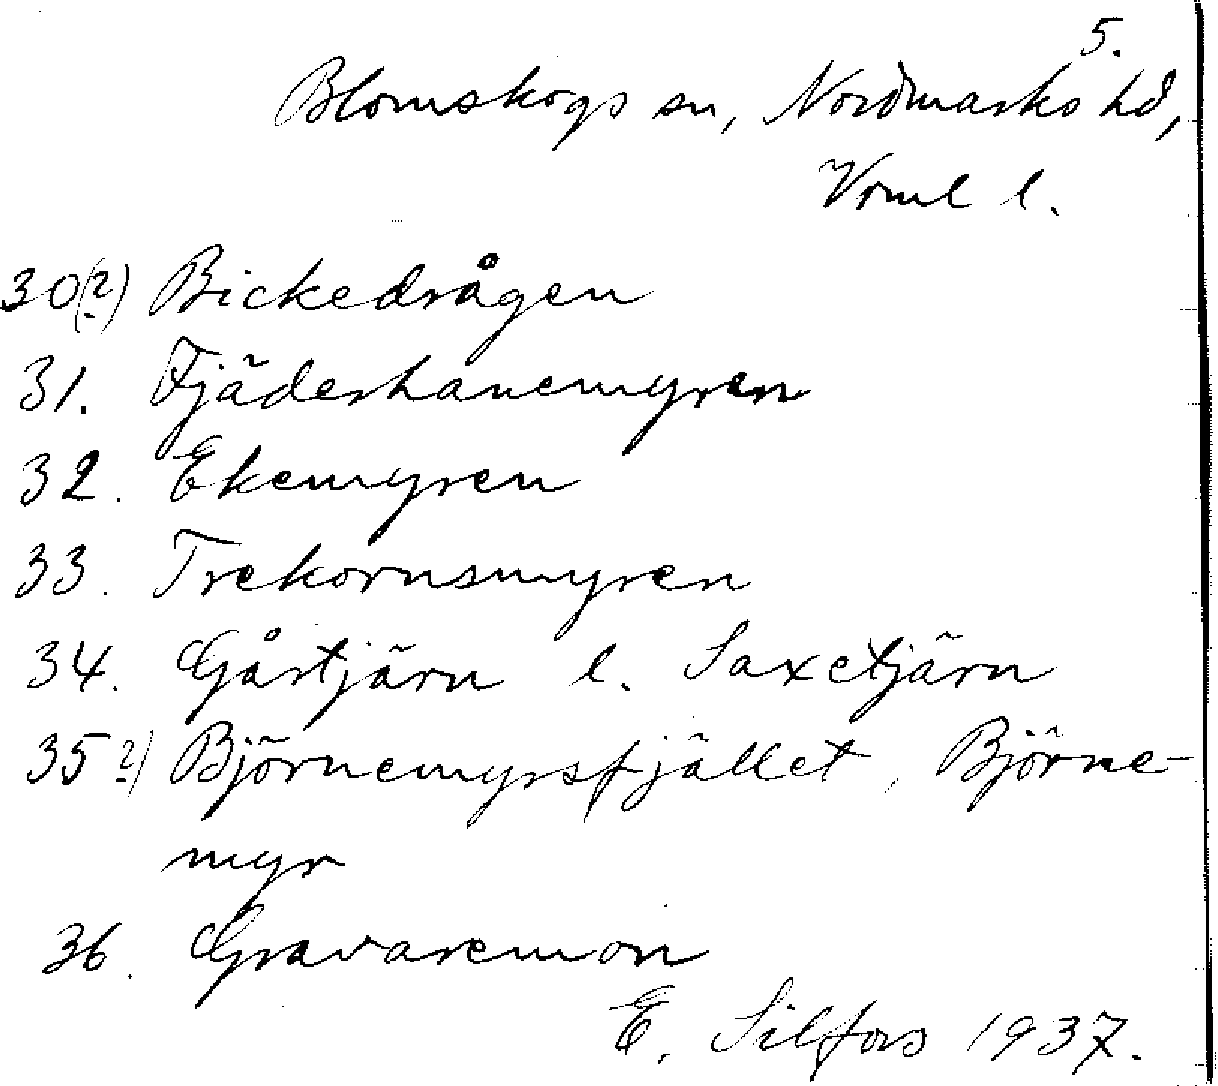 5.
Blomskogs sn, Nordmarks hd,
Vrml l.
30(?) Bickedrågen
31. Fjäderhanemyren
32. Ekemyren
33. Trekornsmyren
34. Gårtjärn l. Saxetjärn
35?) Björnemyrsfjället, Björne-
myr
36. Gravaremon
E. Silfors 1937.